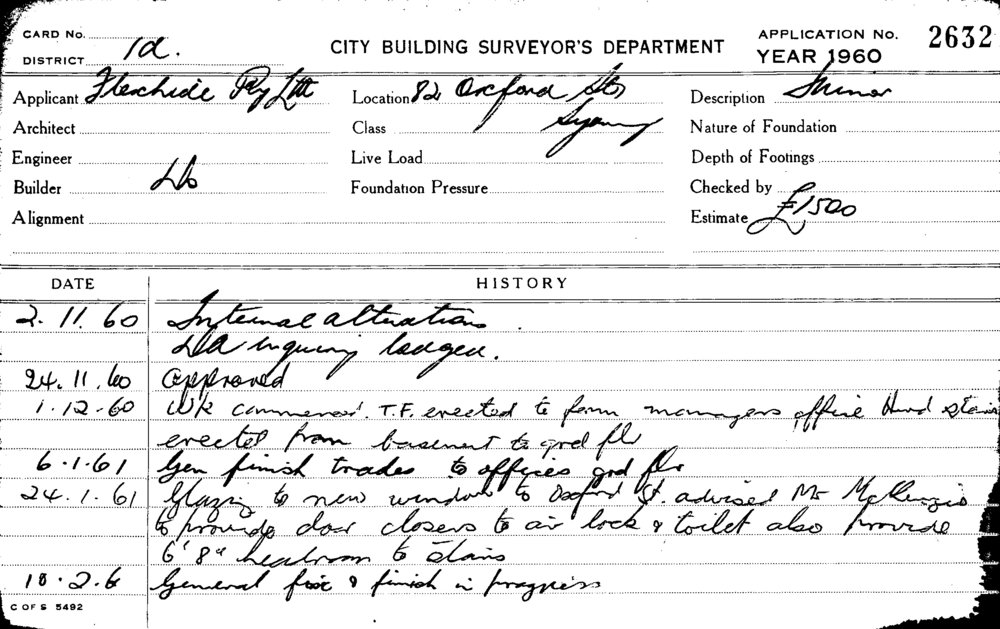 CARD No.
DISTRICT 1d.
CITY BUILDING SURVEYOR'S DEPARTMENT
APPLICATION No. 2632
YEAR 1960
Applicant Flexhide Pty Ltd Location 82 Oxford St Description Minor
Architect Class Sydney Nature of Foundation
Engineer Live Load Depth of Footings
Builder Do Foundation Pressure Checked by
Alignment Estimate £1500
DATE HISTORY
2.11.60 Internal alterations.
DA inquiry lodged.
24.11.60 Approved
1.12.60 Wk commenced. T.F. erected to form managers office Hwd stairs
erected from basement to grd flr
6.1.61 Gen finish trades to offices grd flr
24.1.61 Glazing to new window to Oxford St. advised Mr McKenzie
to provide door closers to air lock & toilet also provide
6' 8" headroom to stairs
10.2.6 General fix & finish in progress
C OF S 5492